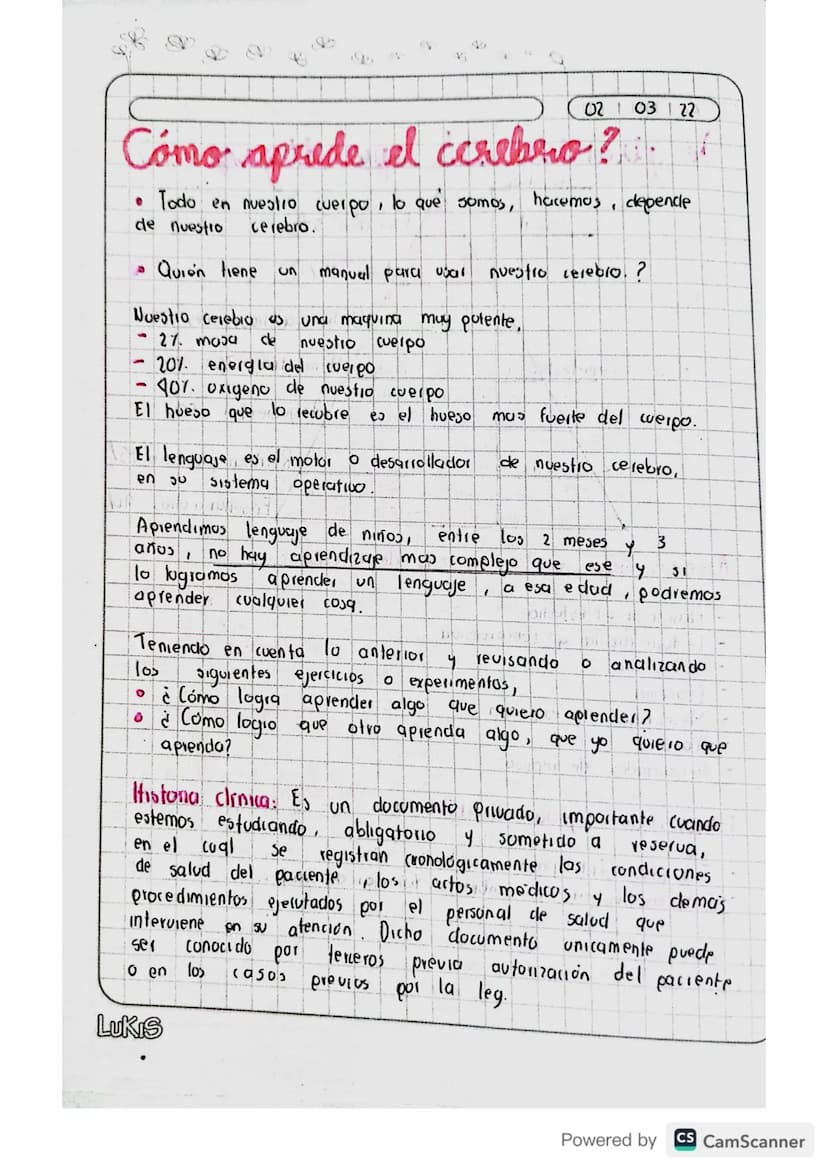 02 | 03 | 22
Cómo aprede el cerebro?
• Todo en nuestro cuerpo, lo que somos, hacemos, depende
de nuestro cerebro.
• Quién tiene un manual para usar nuestro cerebro.?
Nuestro cerebro es una maquina muy potente,
- 2% masa de nuestro cuerpo
- 20% energia del cuerpo
- 40% oxigeno de nuestro cuerpo
El hueso que lo recubre es el hueso mas fuerte del cuerpo.
El lenguaje es el motor o desarrollador de nuestro cerebro,
en su sistema operativo.
Aprendimos lenguaje de niños, entre los 2 meses y 3
años, no hay aprendizaje mas complejo que ese y si
lo logramos aprender un lenguaje, a esa edad, podremos
aprender cualquier cosa.
Teniendo en cuenta lo anterior y revisando o analizando
los siguientes ejercicios o experimentos,
• ¿Cómo logra aprender algo que quiero aprender?
• ¿Cómo logro que otro aprenda algo, que yo quiero que
aprenda?
Historia clínica: Es un documento privado, importante cuando
estemos estudiando, obligatorio y sometido a reserva,
en el cual se registran cronológicamente las condiciones
de salud del paciente, los actos médicos y los demás
procedimientos ejecutados por el personal de salud que
interviene en su atención. Dicho documento unicamente puede
ser conocido por terceros previa autorización del paciente
o en los casos previos por la ley.
LuKIS
Powered by CS CamScanner